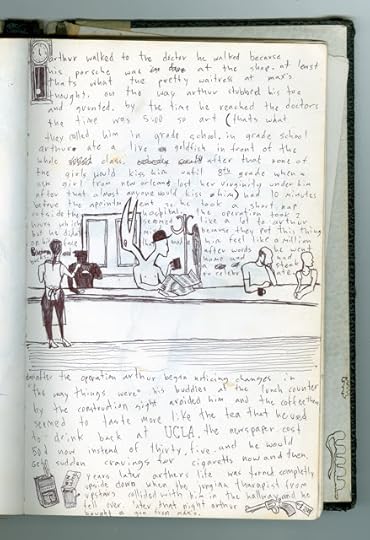 arthur walked to the doctor he walked because
his porsche was at the shop. at least
thats what the pretty waitress at max's
thought. on the way arthur stubbed his toe
and grunted. by the time he reached the doctors
the time was 5:00 so art (thats what
they called him in grade school. in grade school
arthur ate a live goldfish in front of the
whole class. after that none of
the girls would kiss him until 8th grade when a
girl from new orleans lost her virginity under him
after that almost anyone would kiss him) had 10 minutes
before the appointment so he took a short nap
outside the hospital. the operation took 2
hours which seemed like a lot to arthur
but he because they put this thing
on him feel like a million
after words
home and
to celebrate.
after the operation arthur began noticing changes in
the way things were. his buddies at the lunch counter
by the construction sight avoided him and the coffee then
seemed to taste more like the tea that he used
to drink back at UCLA. the newspaper cost
50¢ now instead of thirty five. and he would
get sudden cravings for cigaretts now and then.
years later arthers life was turned completly
upside down when the jungian tharapist from
upstairs collided with him in the hallway and he
fell over. later that night arthur
bought a gun from max's.